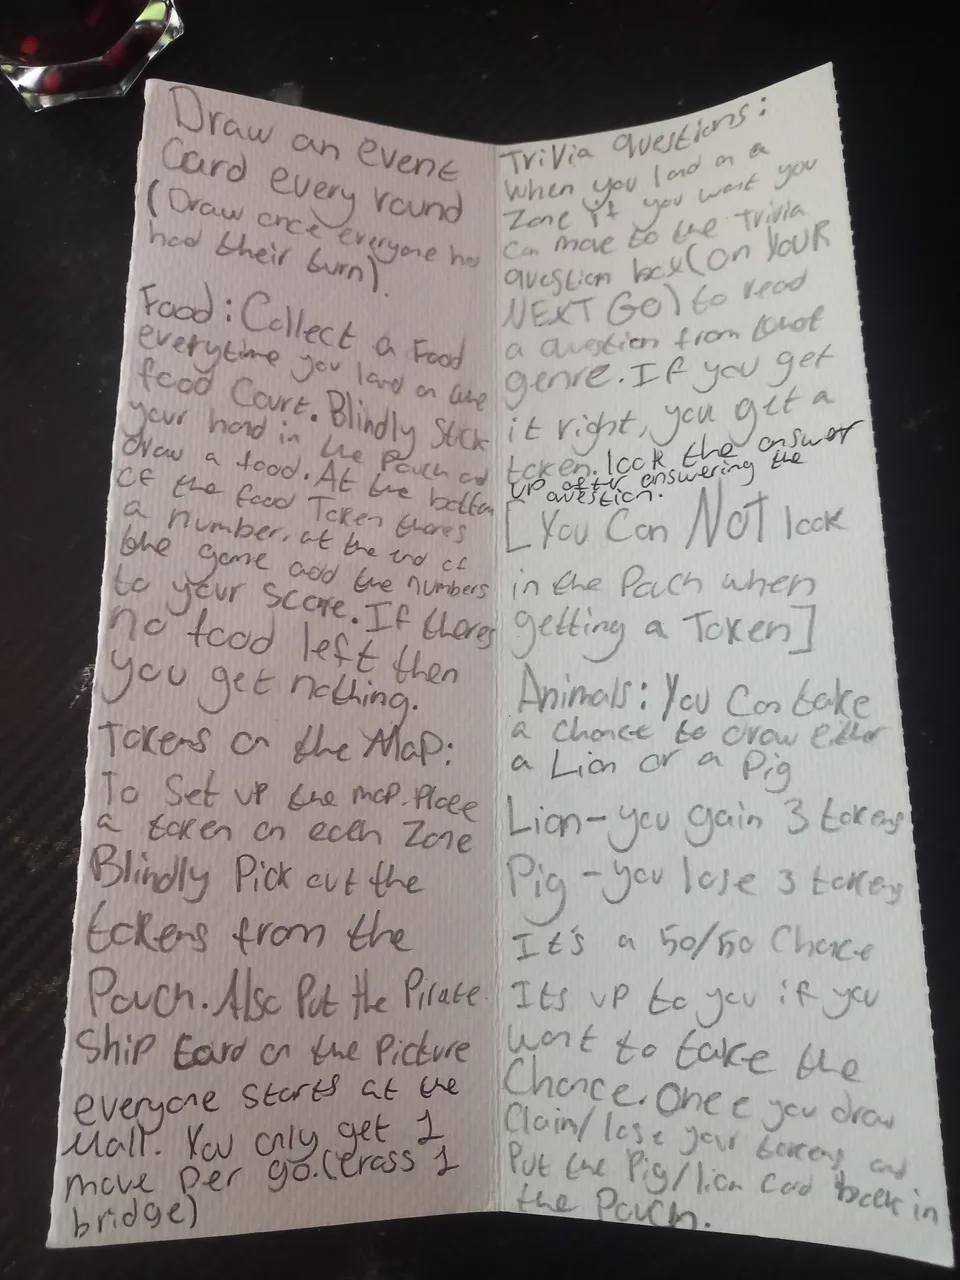 Draw an event
Card every round
(Draw once everyone has
had their turn).
Food: Collect a Food
everytime you land on the
food Court. Blindly Stick
your hand in the Pouch and
draw a food. At the bottom
of the food Token theres
a number, at the end of
the game add the numbers
to your score. If theres
no food left then
you get nothing.
Tokens on the Map:
To Set up the map. Place
a token on each Zone
Blindly Pick out the
tokens from the
Pouch. Also Put the Pirate
Ship Card on the Picture
everyone starts at the
Mall. You only get 1
move per go. (Cross 1
bridge)
Trivia questions:
When you land on a
Zone if you want you
can move to the Trivia
question box (ON YOUR
NEXT GO) to read
a question from that
genre. If you get
it right, you get a
token. look the answer
up after answering the
question.
[You Can NOT look
in the Pouch when
getting a Token]
Animals: You Can take
a chance to draw either
a Lion or a Pig
Lion - you gain 3 tokens
Pig - you lose 3 tokens
It's a 50/50 Chance
Its up to you if you
want to take the
Chance. Once you draw
Claim/lose your tokens and
Put the Pig/lion card back in
the Pouch.